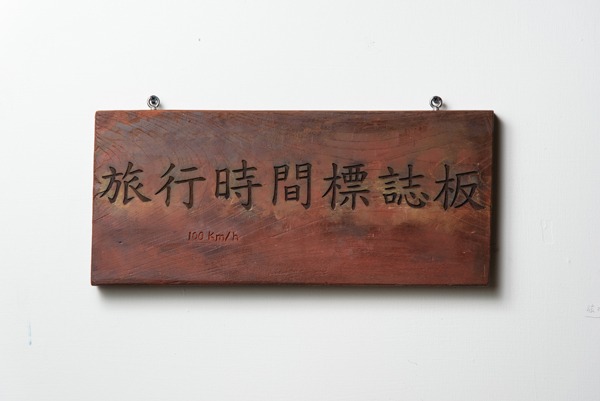 旅行時間標誌板
100 Km/h